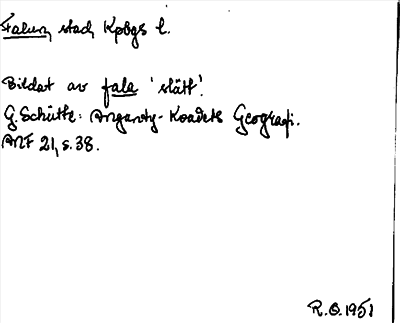 Falun, stad, Kpbgs l.
Bildat av fala 'slätt'.
G. Schütte: Anganty-Koadets Geografi.
ANF 21, s. 38.
R.O. 1951